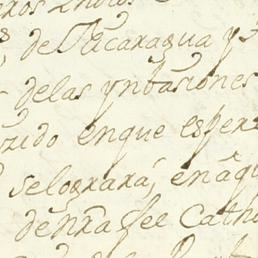 de Nicaragua y
de las ynbasiones
en que esper
se lograrà, en aq
de nrâ fee Catho